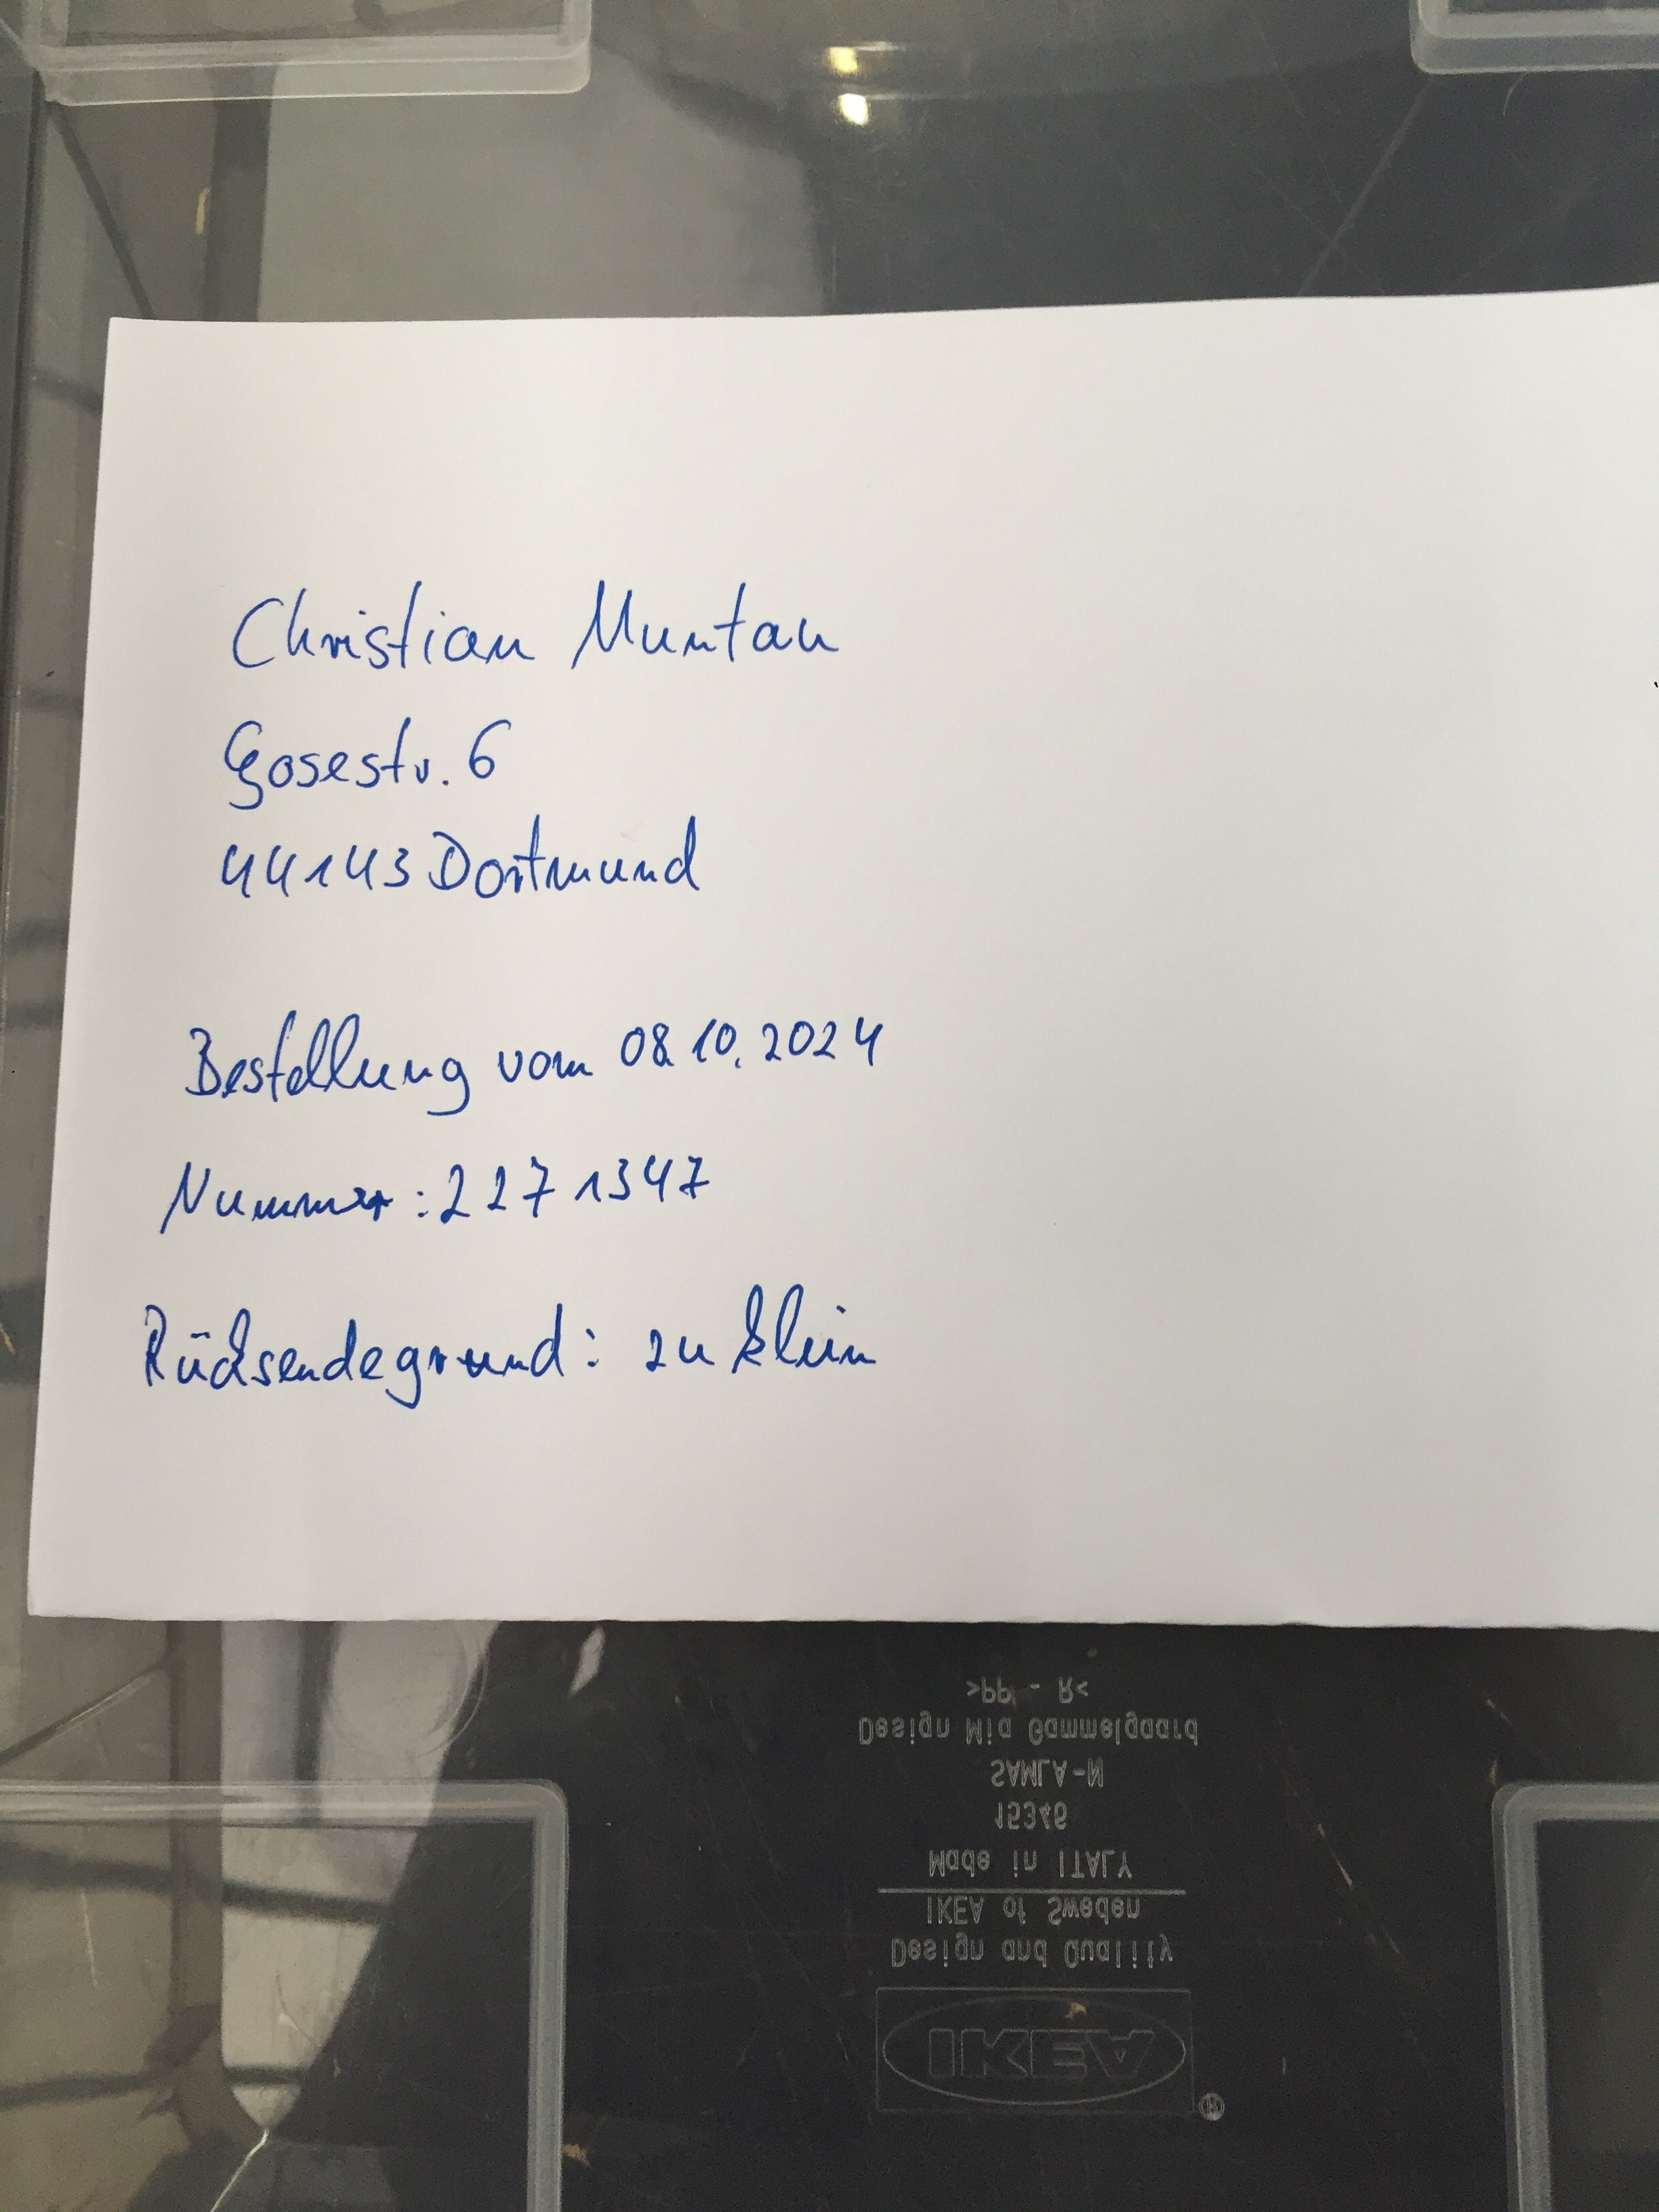 Christian Muntau
Gosestr. 6
44143 Dortmund
Bestellung vom 08.10.2024
Nummer: 2271347
Rücksendegrund: zu klein
>PP - R<
Design Mia Gammelgaard
SAMLA-N
15346
Made in ITALY
IKEA of Sweden
Design and Quality
IKEA
®